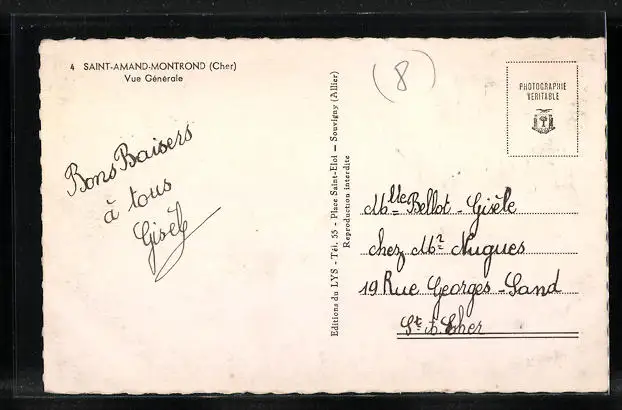 4 SAINT-AMAND-MONTROND (Cher)
Vue Générale
Bons Baisers
à tous
Gisèle
Editions du LYS - Tél. 55 - Place Saint-Eloi - Souvigny (Allier)
Reproduction interdite
(8)
PHOTOGRAPHIE
VERITABLE
Mlle Bellot - Gisèle
chez Mr Nugues
19 Rue Georges-Sand
St A. Cher